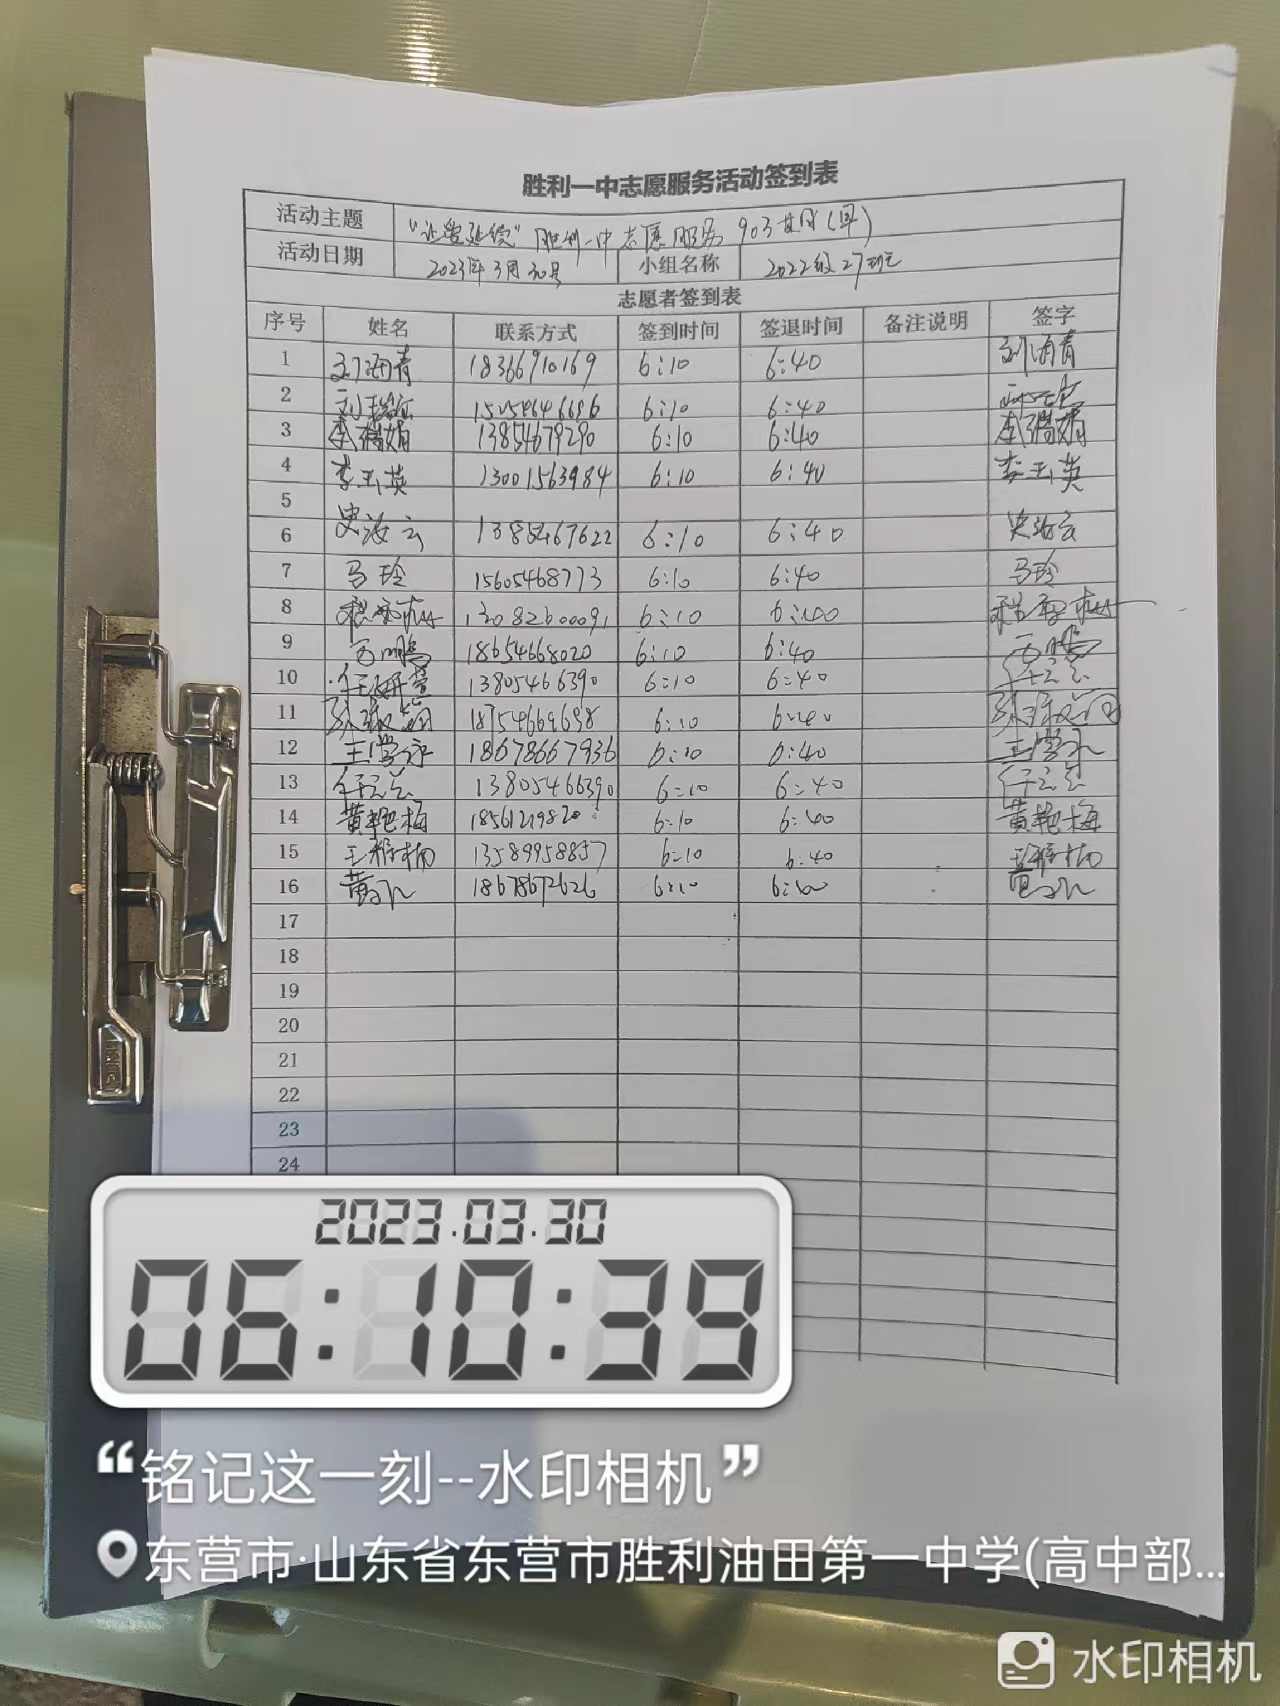 胜利一中志愿服务活动签到表
活动主题 胜利一中志愿服务 903 (早)
活动日期 2023年3月30号 小组名称 2022级27班
志愿者签到表
序号 姓名 联系方式 签到时间 签退时间 备注说明 签字
1 刘海青 18366910169 6:10 6:40 刘海青
2 6:10 6:40
3 李瑞娟 13854679290 6:10 6:40 李瑞娟
4 李玉英 13001563984 6:10 6:40 李玉英
5
6 史海云 1385467622 6:10 6:40 史海云
7 马玲 15605468773 6:10 6:40 马玲
8 13082600091 6:10 6:40
9 18654668020 6:10 6:40
10 13805466390 6:10 6:40
11 18754669698 6:10 6:40
12 王学永 18678667936 6:10 6:40 王学永
13 13805466390 6:10 6:40
14 黄艳梅 6:10 6:40 黄艳梅
15 13589958857 6:10 6:40
16 18678672626 6:10 6:40
17
18
19
20
21
22
23
24
2023.03.30
06:10:39
“铭记这一刻--水印相机”
东营市·山东省东营市胜利油田第一中学(高中部...
水印相机